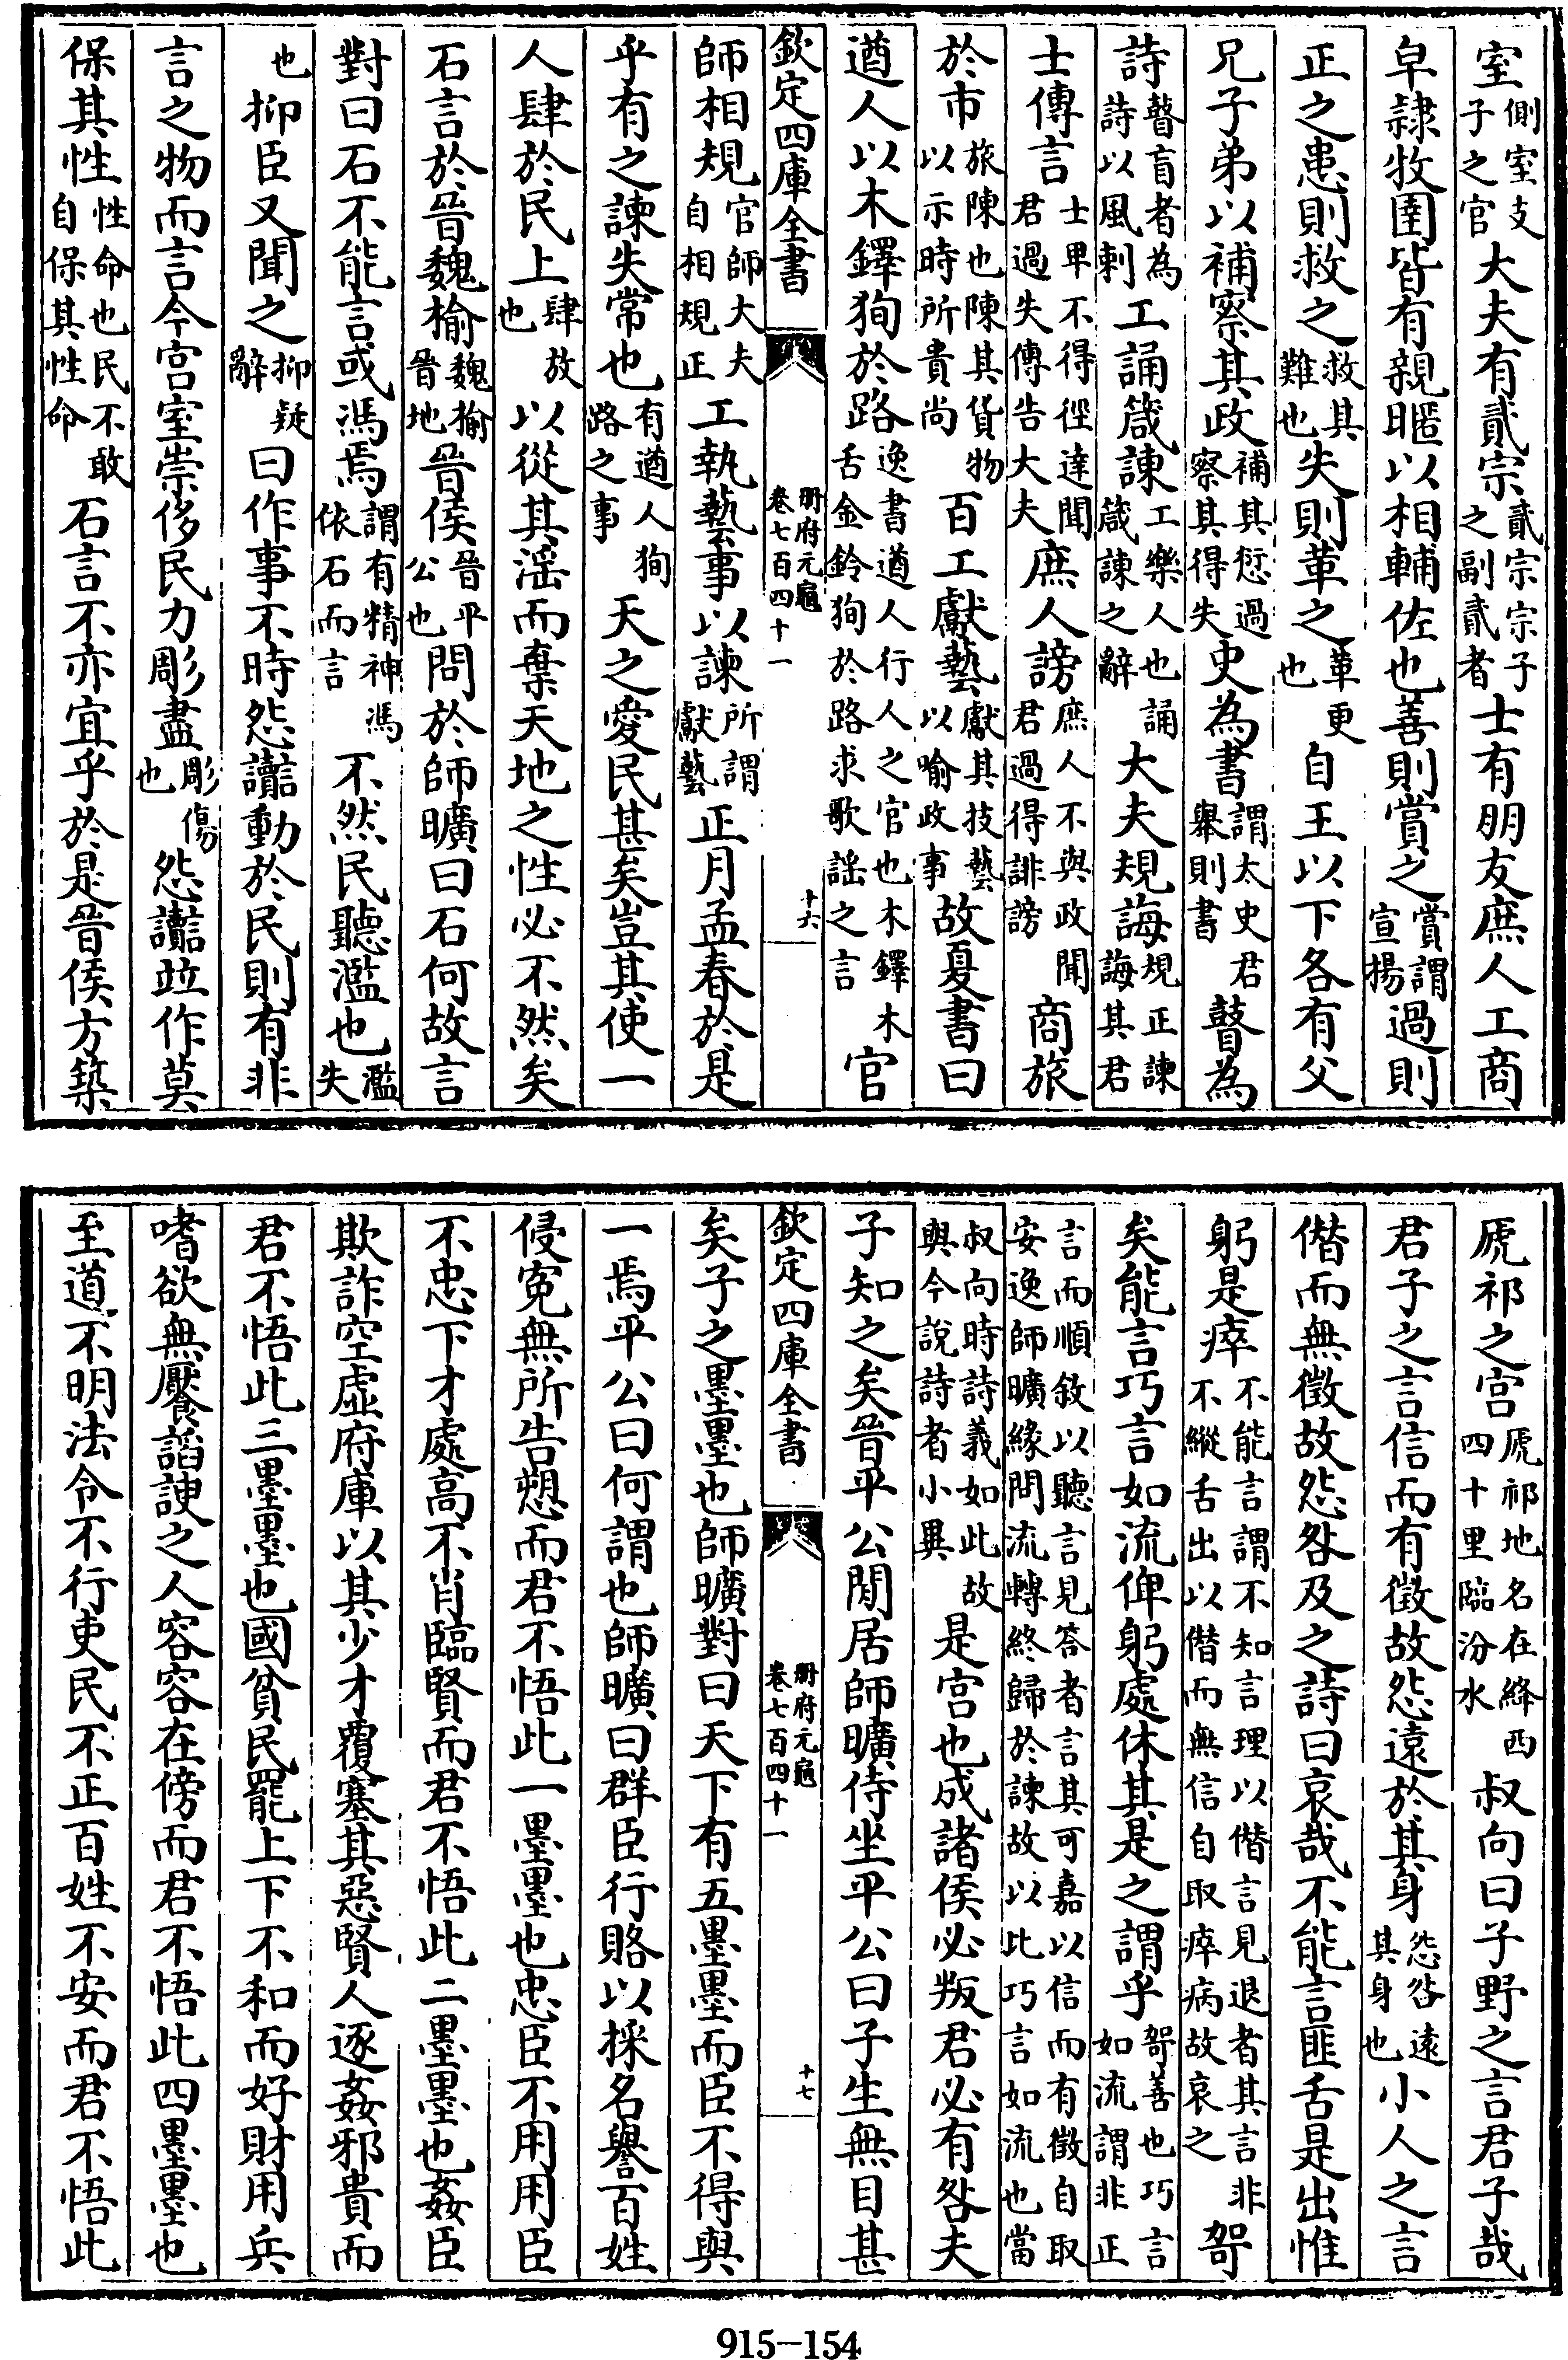 室側室支子之官大夫有貳宗貳宗宗子之副貳者士有朋友庶人工商
皁隷牧圉皆有親暱以相輔佐也善則賞之賞謂宣揚過則
正之患則救之救其難也失則革之革更也自王以下各有父
兄子弟以補察其政補其愆過察其得失史為書謂太史君舉則書瞽為
詩瞽盲者為詩以風刺工誦箴諫工樂人也誦箴諫之辭大夫規誨規正諫誨其君
士傳言士卑不得徑達聞君過失傳告大夫庶人謗庶人不與政聞君過得誹謗商旅
於市旅陳也陳其貨物以示時所貴尚百工獻藝獻其技藝以喻政事故夏書曰
遒人以木鐸狥於路逸書遒人行人之官也木鐸木舌金鈴狥於路求歌謡之言官
欽定四庫全書 冊府元龜卷七百四十一 十六
師相規官師大夫自相規正工執藝事以諫所謂獻藝正月孟春於是
乎有之諫失常也有遒人狥路之事天之愛民甚矣豈其使一
人肆於民上肆放也以從其淫而棄天地之性必不然矣
石言於晉魏榆魏榆晉地晉侯晉平公也問於師曠曰石何故言
對曰石不能言或馮焉謂有精神馮依石而言不然民聽濫也濫失
也抑臣又聞之抑疑辭曰作事不時怨讟動於民則有非
言之物而言今宫室崇侈民力彫盡彫傷也怨讟竝作莫
保其性性命也民不敢自保其性命石言不亦宜乎於是晉侯方築
虒祁之宫虒祁地名在絳西四十里臨汾水叔向曰子野之言君子哉
君子之言信而有徵故怨遠於其身怨咎遠其身也小人之言
僭而無徵故怨咎及之詩曰哀哉不能言匪舌是出惟
躬是瘁不能言謂不知言理以僭言見退者其言非不縱舌出以僭而無信自取瘁病故哀之哿
矣能言巧言如流俾躬處休其是之謂乎哿善也巧言如流謂非正
言而順敘以聽言見答者言其可嘉以信而有徵自取安逸師曠緣問流轉終歸於諫故以此巧言如流也當
叔向時詩義如此故與今說詩者小異是宫也成諸侯必叛君必有咎夫
子知之矣晉平公閒居師曠侍坐平公曰子生無目甚
欽定四庫全書 冊府元龜卷七百四十一 十七
矣子之墨墨也師曠對曰天下有五墨墨而臣不得與
一焉平公曰何謂也師曠曰群臣行賂以採名譽百姓
侵寃無所告愬而君不悟此一墨墨也忠臣不用用臣
不忠下才處高不肖臨賢而君不悟此二墨墨也姦臣
欺詐空虚府庫以其少才覆塞其惡賢人逐姦邪貴而
君不悟此三墨墨也國貧民罷上下不和而好財用兵
嗜欲無饜謟諛之人容容在傍而君不悟此四墨墨也
至道不明法令不行吏民不正百姓不安而君不悟此
915-154